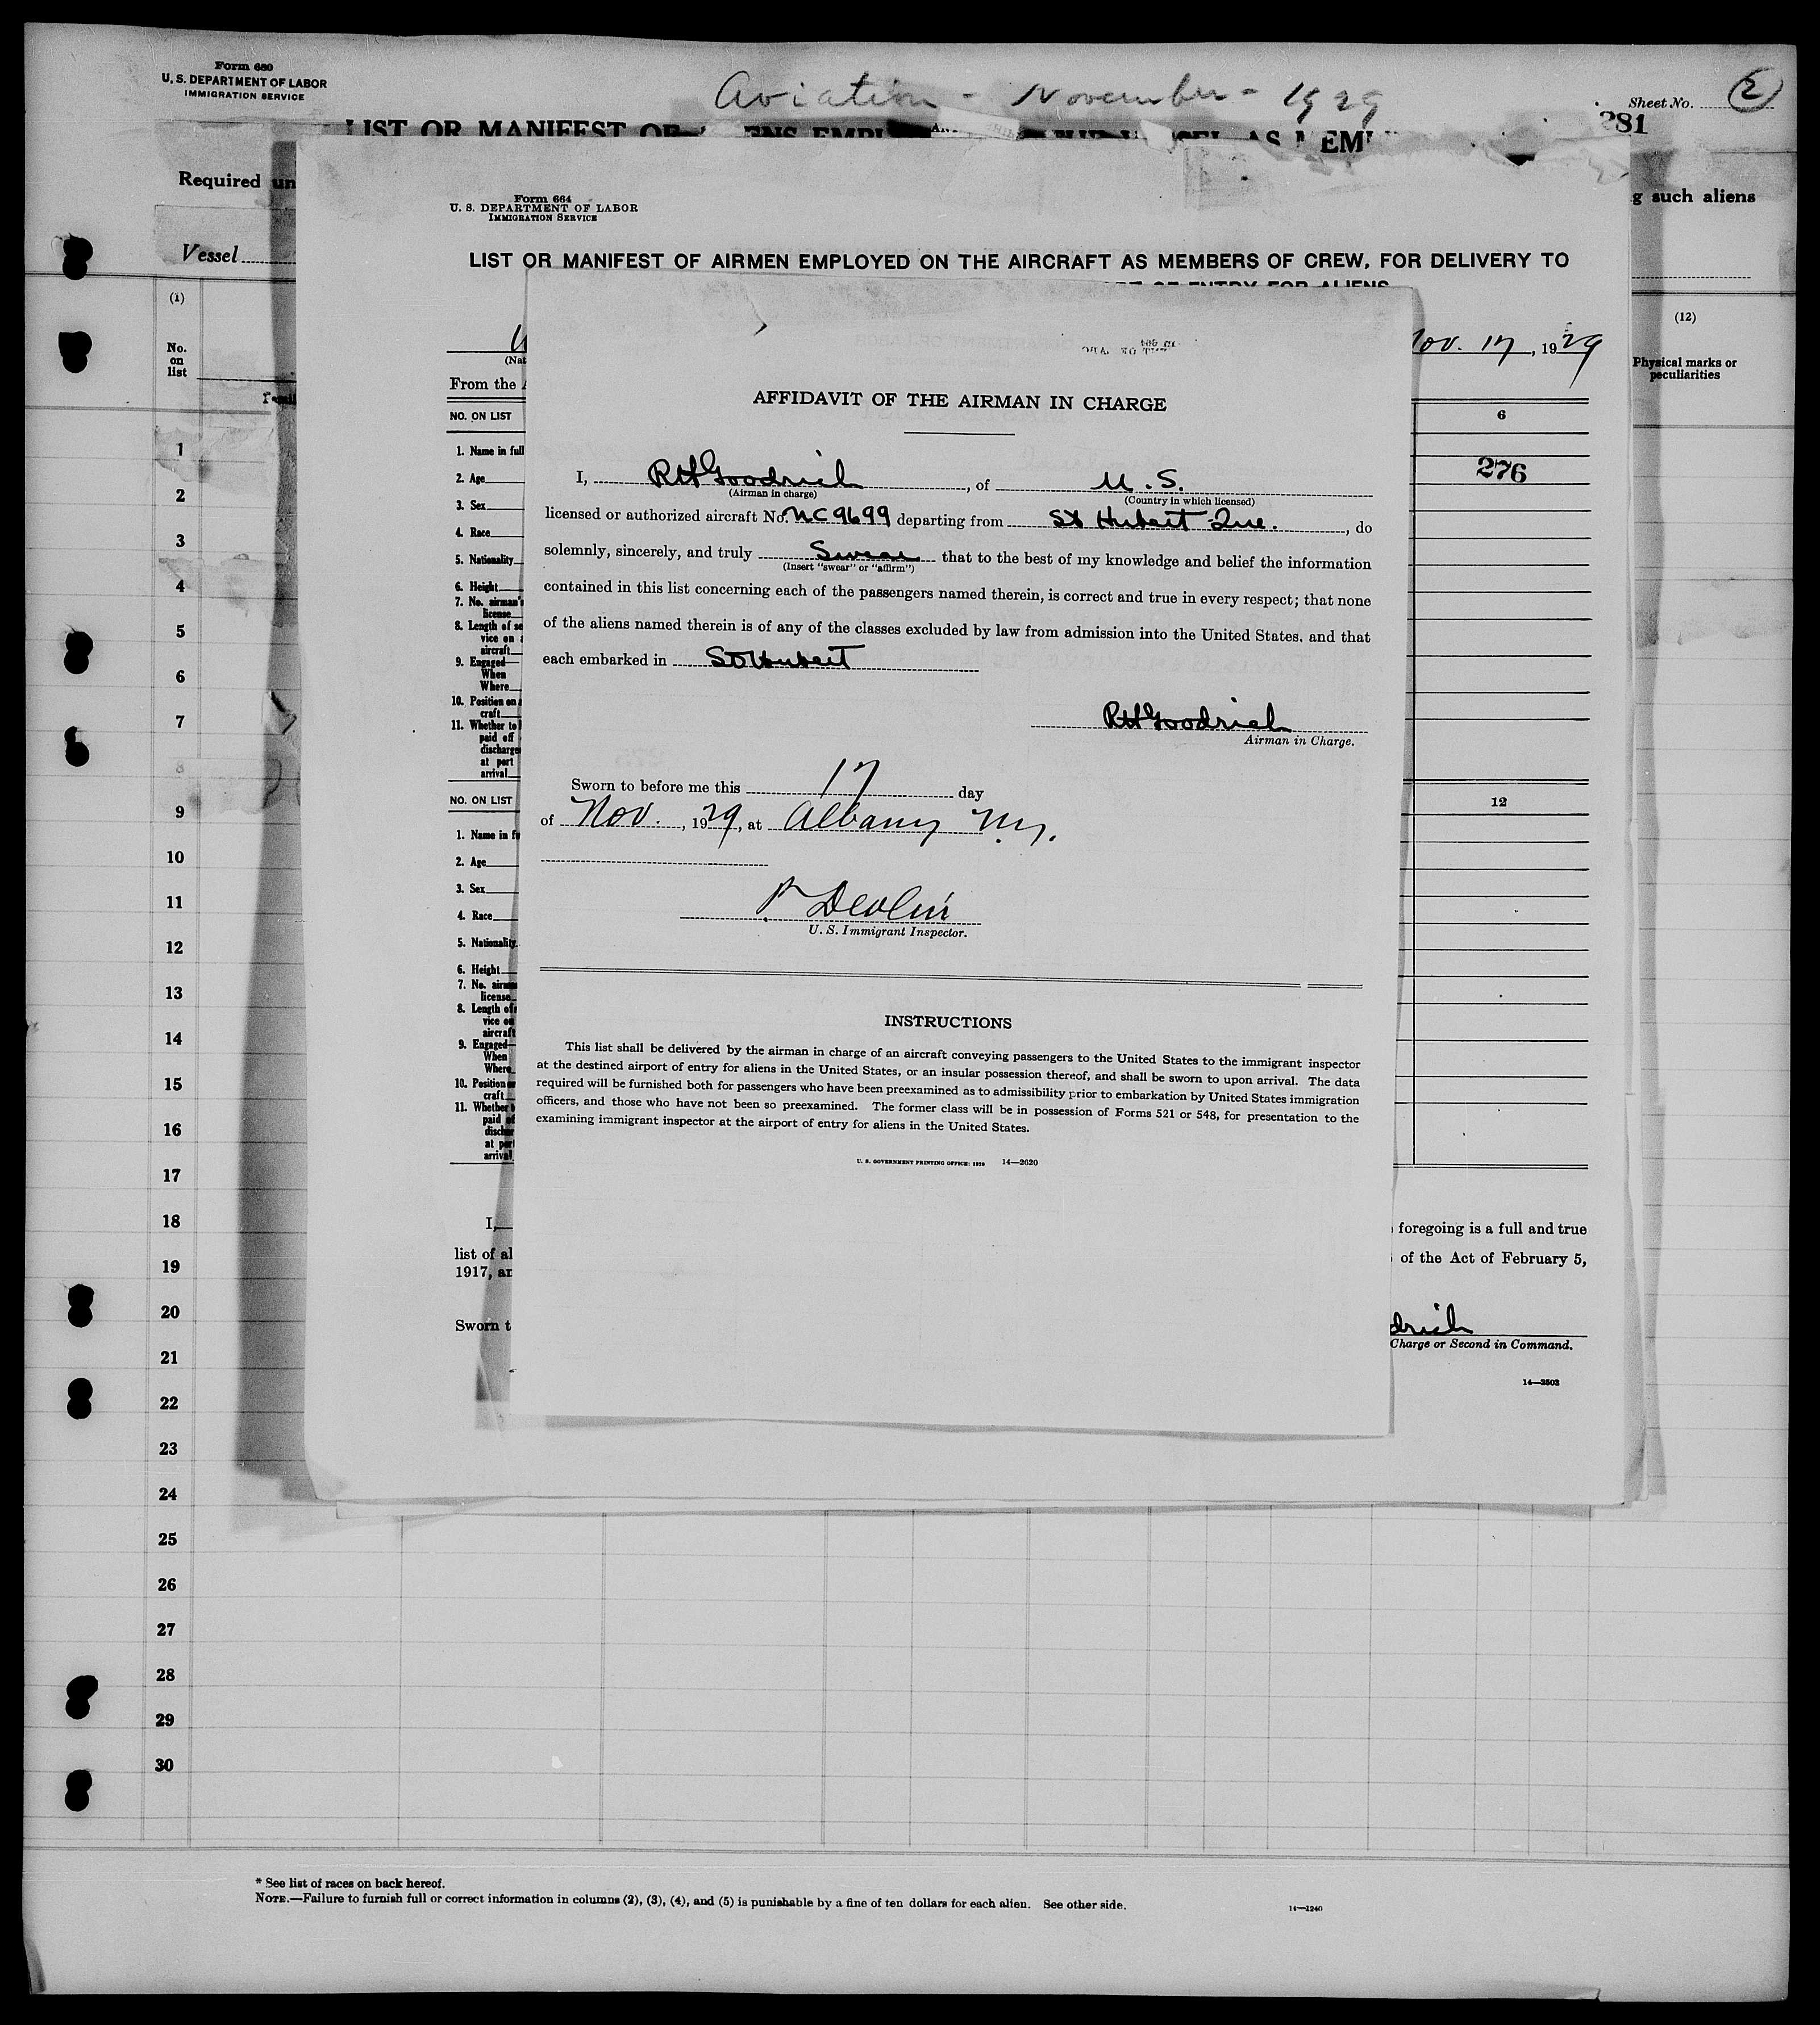 Form 680
U. S. DEPARTMENT OF LABOR
IMMIGRATION SERVICE
Aviation - November - 1929
Sheet No. 2
281
LIST OR MANIFEST OF
AS MEM
Required un
g such aliens
Vessel
(1)
No.
on
list
(12)
Physical marks or
peculiarities
1
2
3
4
5
6
7
8
9
10
11
12
13
14
15
16
17
18
19
20
21
22
23
24
25
26
27
28
29
30
Form 664
U. S. DEPARTMENT OF LABOR
IMMIGRATION SERVICE
LIST OR MANIFEST OF AIRMEN EMPLOYED ON THE AIRCRAFT AS MEMBERS OF CREW, FOR DELIVERY TO
OF ENTRY FOR ALIENS
(Nat
Nov. 17, 1929
From the A
NO. ON LIST
6
1. Name in full
276
2. Age
3. Sex
4. Race
5. Nationality
6. Height
7. No. airman's
license
8. Length of se
vice on a
aircraft
9. Engaged—
When
Where
10. Position on a
craft
11. Whether to
paid off
discharge
at port
arrival
NO. ON LIST
12
1. Name in fu
2. Age
3. Sex
4. Race
5. Nationality
6. Height
7. No. airma
license
8. Length of
vice on
aircraft
9. Engaged—
When
Where
10. Position on
craft
11. Whether t
paid of
discha
at port
arrival
I,
foregoing is a full and true
list of al
of the Act of February 5,
1917, an
Sworn t
drich
Charge or Second in Command.
14—2503
AFFIDAVIT OF THE AIRMAN IN CHARGE
I, RH Goodrich, of U. S.
(Airman in charge)
(Country in which licensed)
licensed or authorized aircraft No. NC9699 departing from St Hubert Que., do
solemnly, sincerely, and truly Swear that to the best of my knowledge and belief the information
(Insert "swear" or "affirm")
contained in this list concerning each of the passengers named therein, is correct and true in every respect; that none
of the aliens named therein is of any of the classes excluded by law from admission into the United States, and that
each embarked in St Hubert
RH Goodrich
Airman in Charge.
Sworn to before me this 17 day
of Nov., 1929, at Albany N.Y.
P Devlin
U. S. Immigrant Inspector.
INSTRUCTIONS
This list shall be delivered by the airman in charge of an aircraft conveying passengers to the United States to the immigrant inspector
at the destined airport of entry for aliens in the United States, or an insular possession thereof, and shall be sworn to upon arrival. The data
required will be furnished both for passengers who have been preexamined as to admissibility prior to embarkation by United States immigration
officers, and those who have not been so preexamined. The former class will be in possession of Forms 521 or 548, for presentation to the
examining immigrant inspector at the airport of entry for aliens in the United States.
U. S. GOVERNMENT PRINTING OFFICE: 1929 14—2620
* See list of races on back hereof.
NOTE.—Failure to furnish full or correct information in columns (2), (3), (4), and (5) is punishable by a fine of ten dollars for each alien. See other side.
14—1240